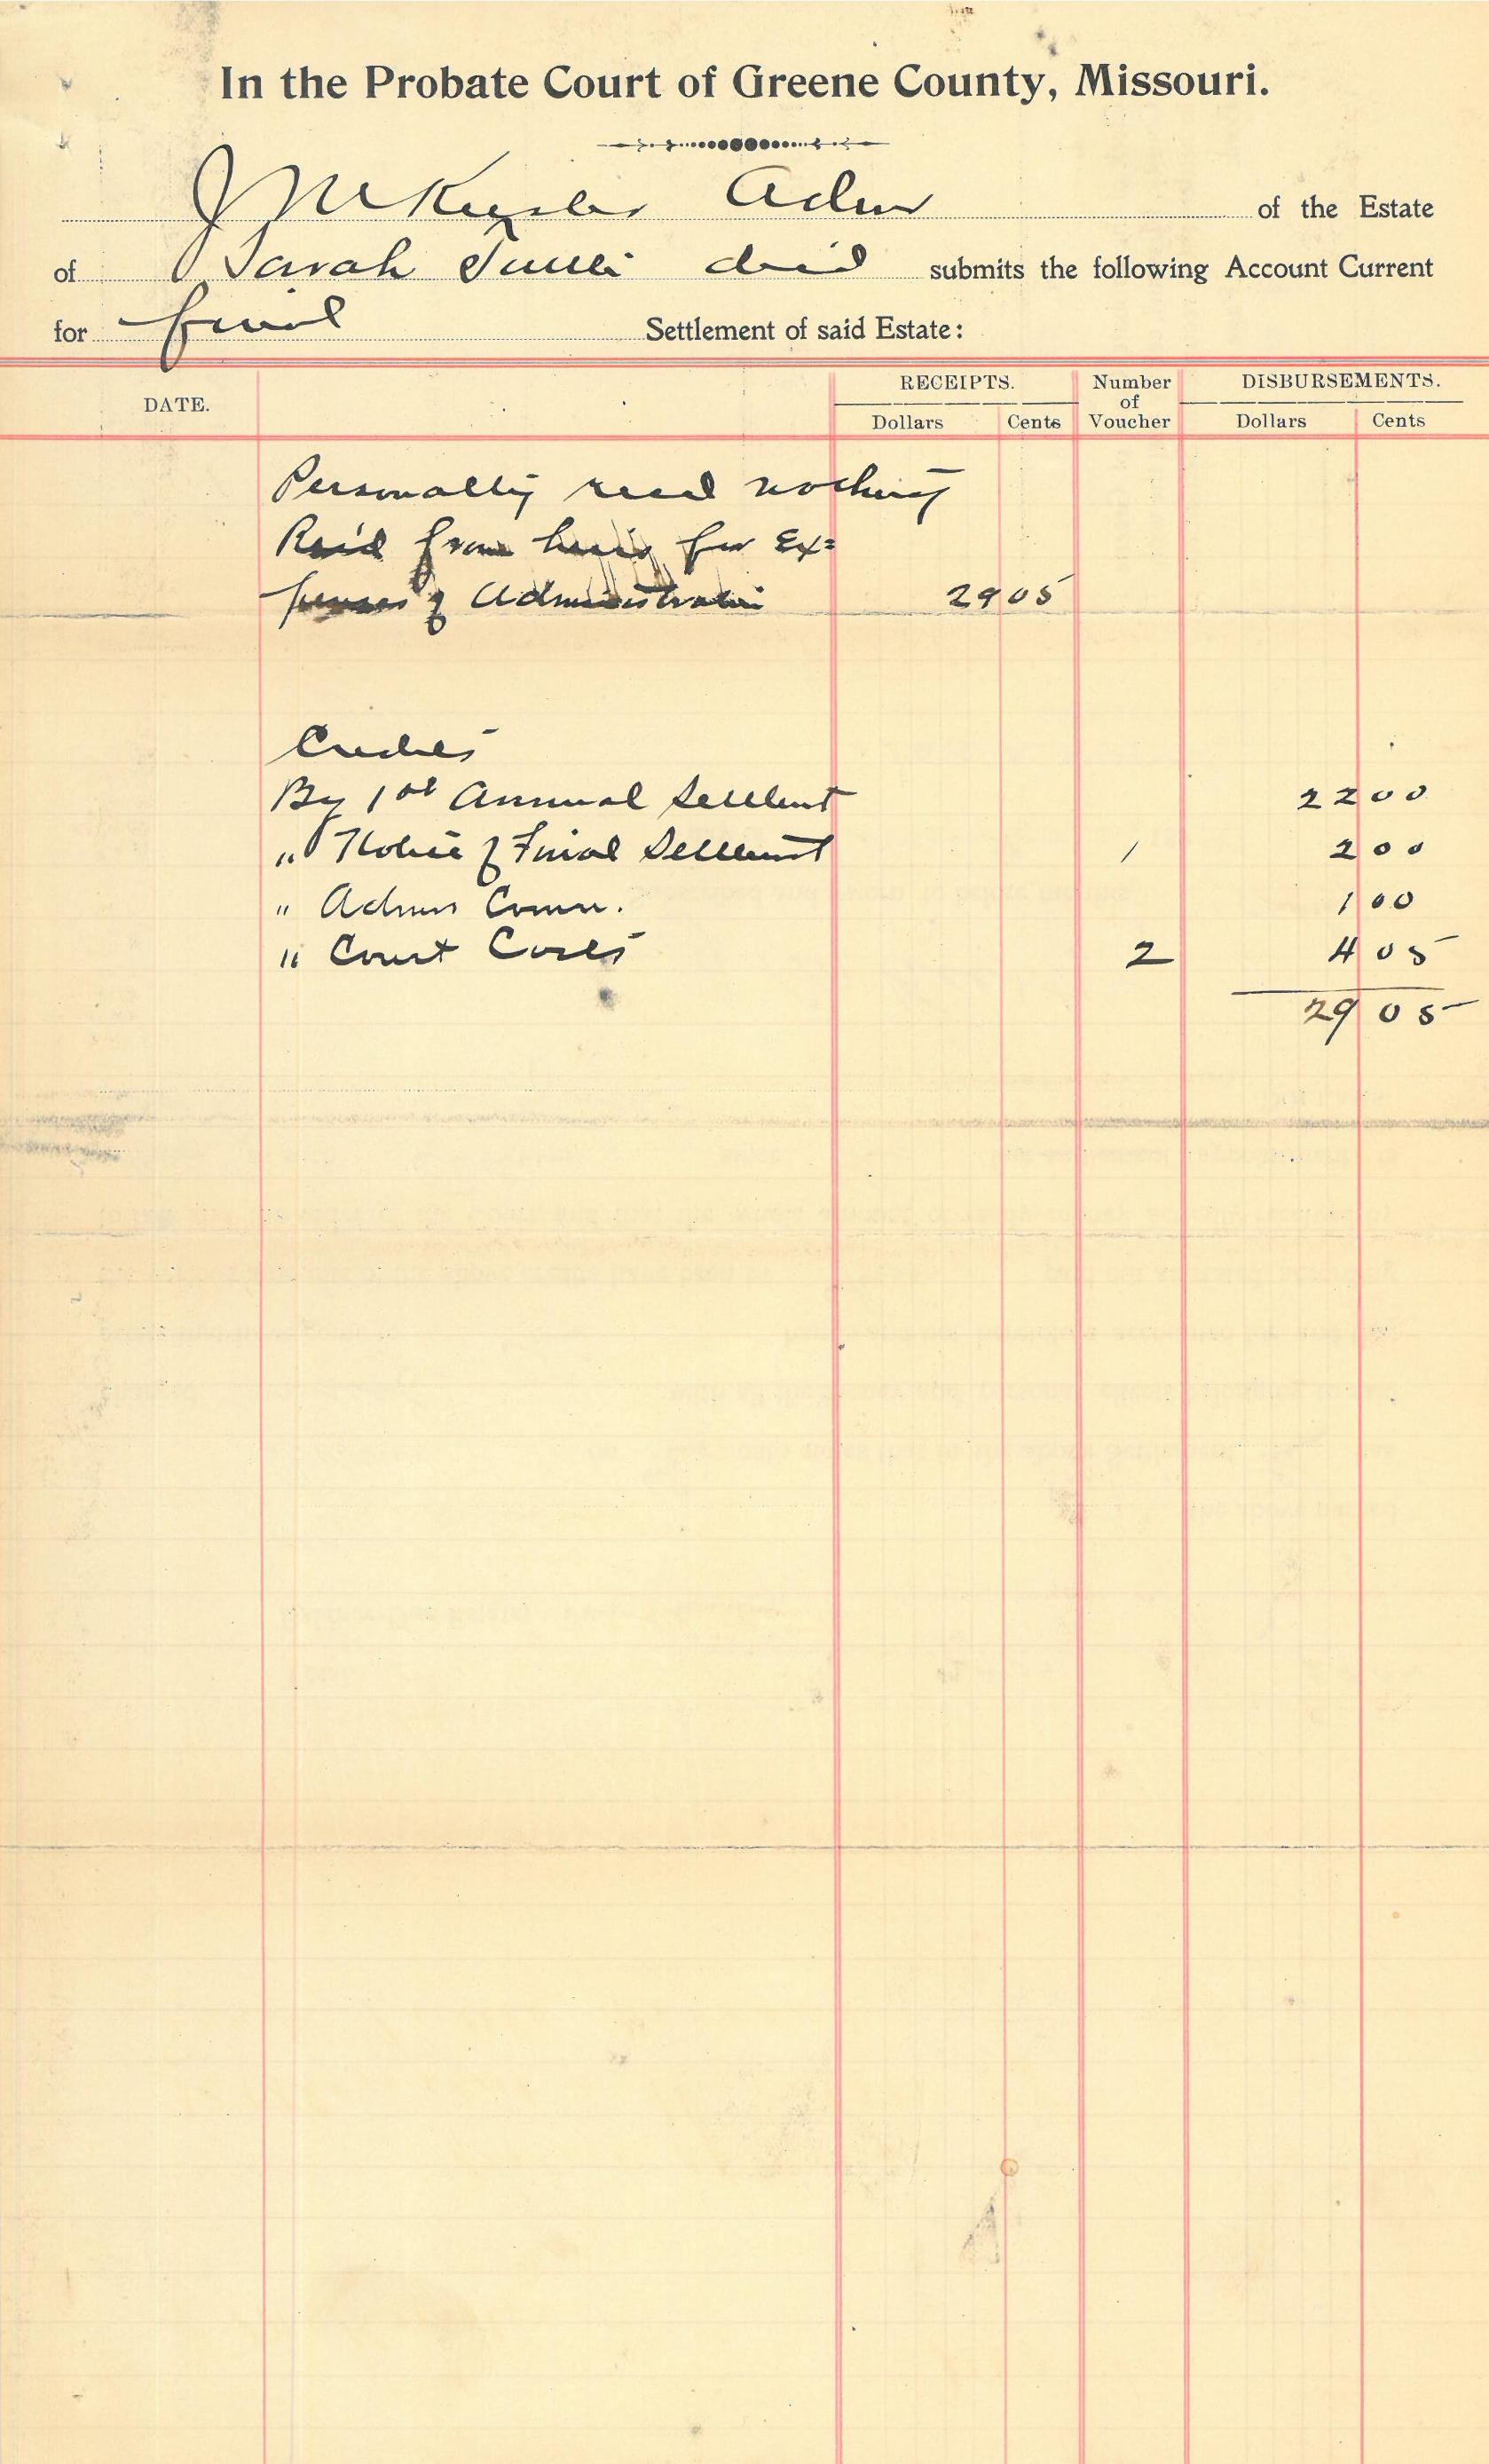 In the Probate Court of Greene County, Missouri.
J M Keysler Admr of the Estate
of Sarah decd submits the following Account Current
for final Settlement of said Estate:
DATE. RECEIPTS. Number of Voucher DISBURSEMENTS.
Dollars Cents Dollars Cents
Personally recd nothing
Recd from heirs for Ex=
penses of Administration 29 05
Credits
By 1st Annual Settlemt 22 00
" Notice of Final Settlemt 1 2 00
" Admrs Comm. 1 00
" Court Costs 2 4 05
29 05